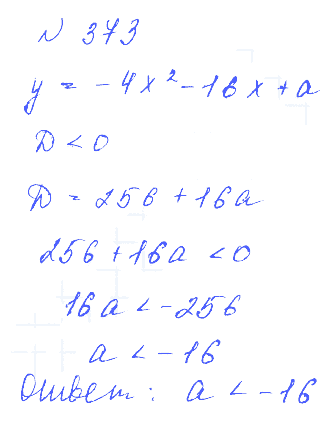 N 373
y = -4x² - 16x + a
D < 0
D = 256 + 16a
256 + 16a < 0
16a < -256
a < -16
Ответ: a < -16